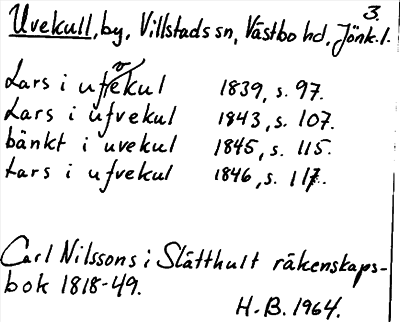 3.
Uvekull, by, Villstads sn, Västbo hd, Jönk.l.
Lars i ufvekul 1839, s. 97.
Lars i ufvekul 1843, s. 107.
bänkt i uvekul 1845, s. 115.
Lars i ufvekul 1846, s. 117.
Carl Nilssons i Slätthult räkenskaps-
bok 1818-49.
H.B. 1964.